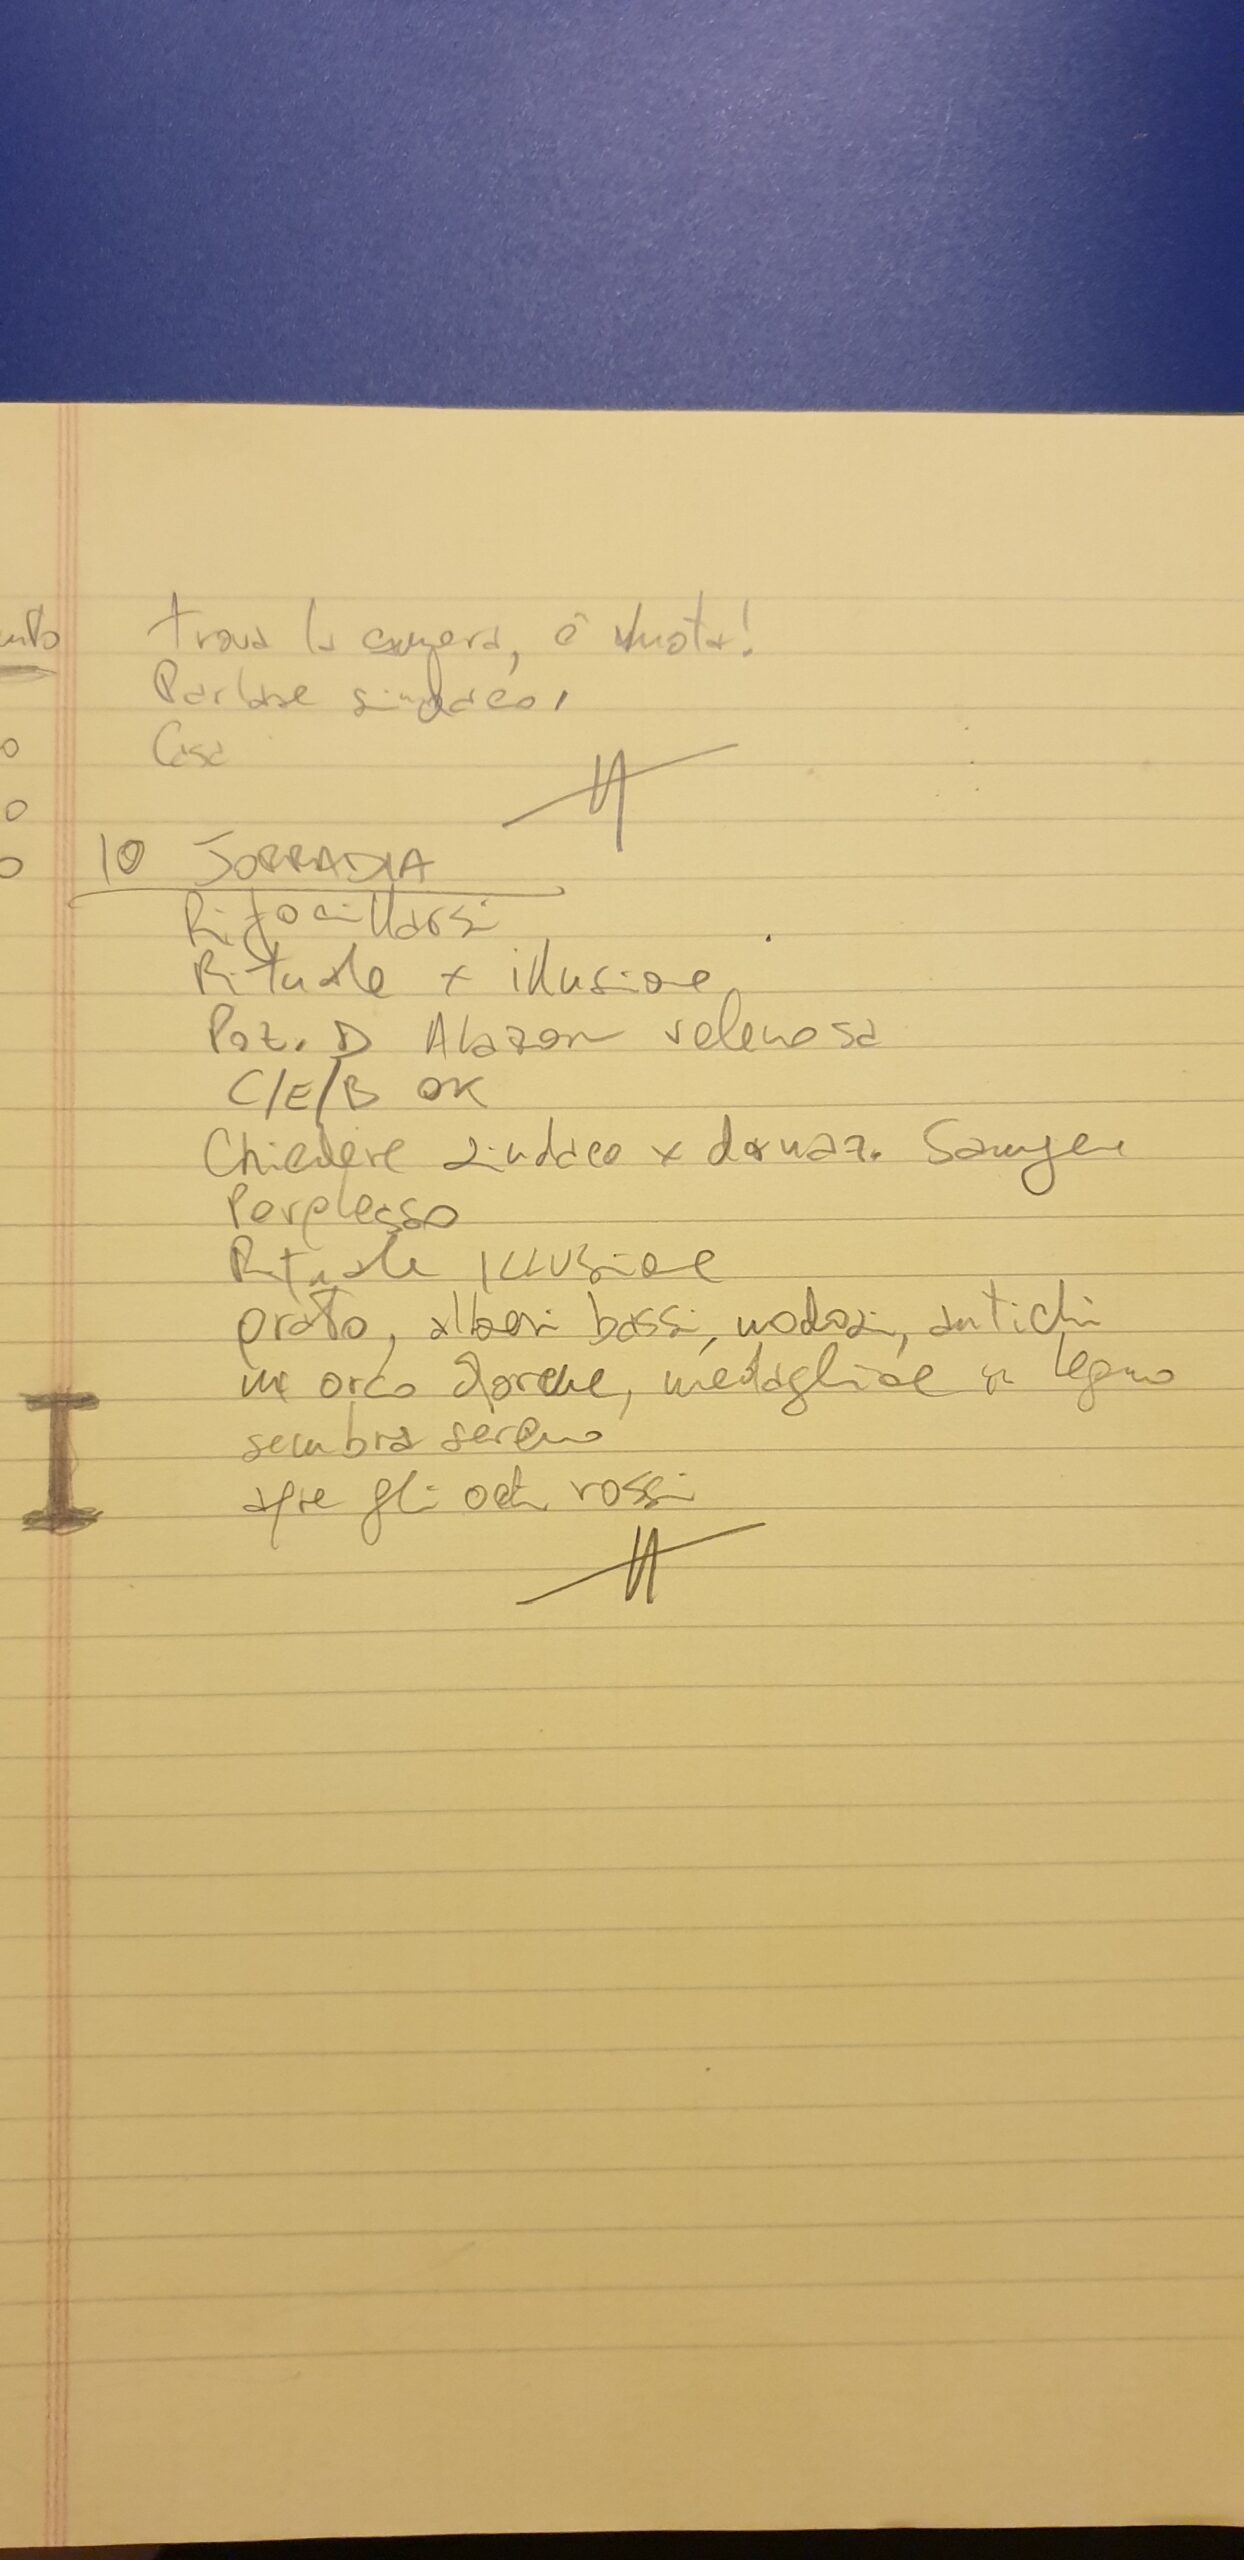 Trova la camera, è vuota!
Parlare sindaco,
Casa
10 JORRADIA
Rifocillarsi
Rituale x illusione
Poz. D Alazon velenosa
C/E/B OK
Chiedere sindaco x donaz. Sangue
Perplesso
Rituale ILLUSione
prato, alberi bassi, nodosi, antichi
un orco, medaglione in legno
sembra sereno
apre gli occhi rossi